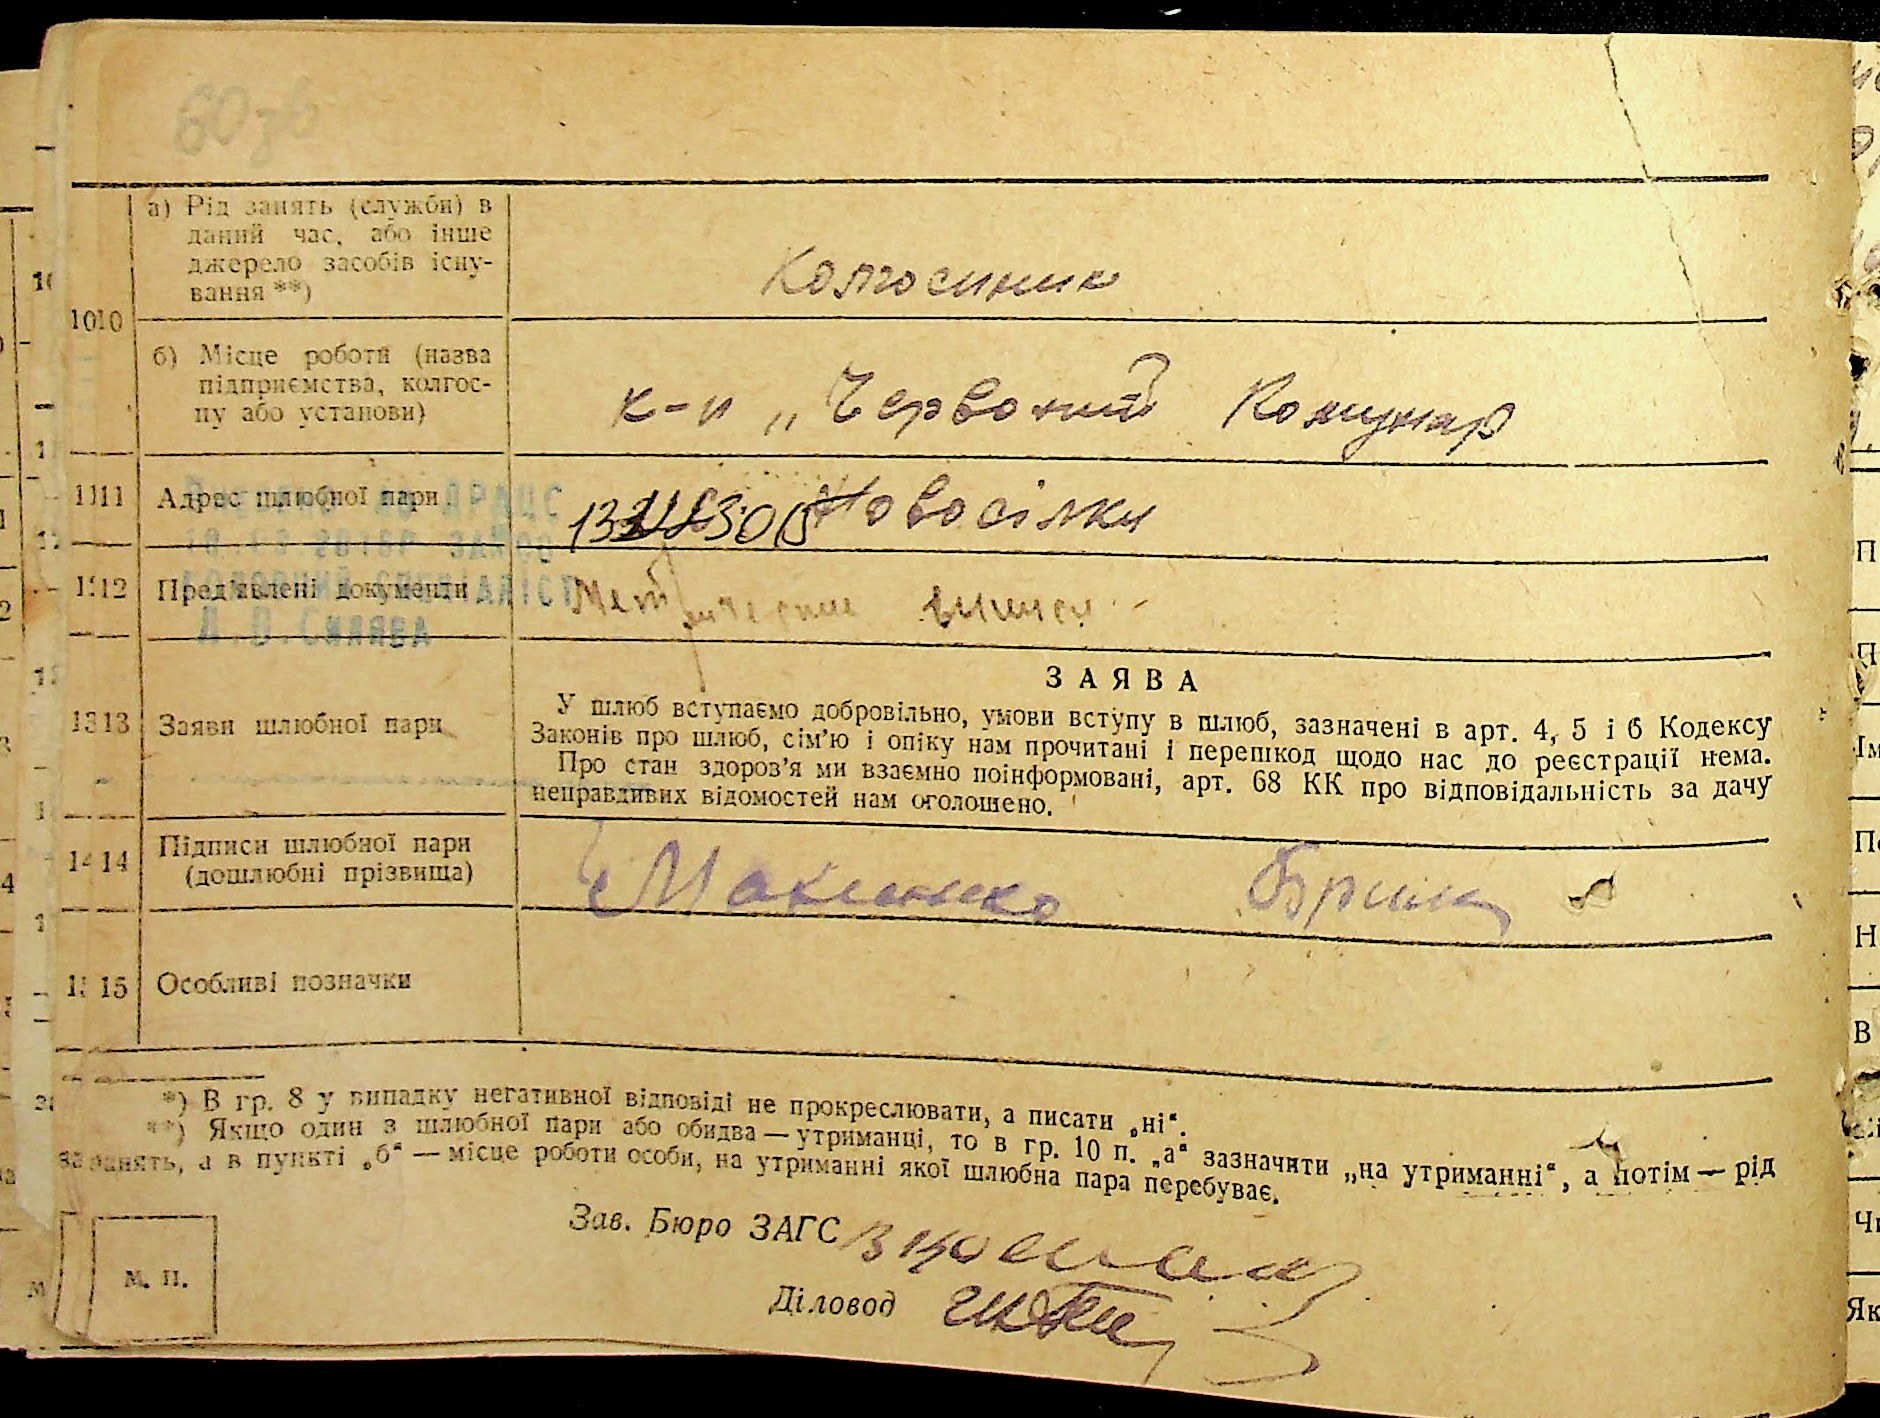 60зв
а) Рід занять (служби) в
даний час, або інше
джерело засобів існу-
вання **)
Колгоспник
10
б) Місце роботи (назва
підприємства, колгос-
пу або установи)
к-п „Червоний Комунар
11 Адрес шлюбної пари
Новосілки
12 Пред'явлені документи
13 Заяви шлюбної пари
ЗАЯВА
У шлюб вступаємо добровільно, умови вступу в шлюб, зазначені в арт. 4, 5 і 6 Кодексу
Законів про шлюб, сім'ю і опіку нам прочитані і перешкод щодо нас до реєстрації нема.
Про стан здоров'я ми взаємно поінформовані, арт. 68 КК про відповідальність за дачу
неправдивих відомостей нам оголошено.
14 Підписи шлюбної пари
(дошлюбні прізвища)
15 Особливі позначки
*) В гр. 8 у випадку негативної відповіді не прокреслювати, а писати „ні“.
**) Якщо один з шлюбної пари або обидва — утриманці, то в гр. 10 п. „а“ зазначити „на утриманні“, а потім — рід
занять, а в пункті „б“ — місце роботи особи, на утриманні якої шлюбна пара перебуває.
Зав. Бюро ЗАГС
Діловод
М. П.